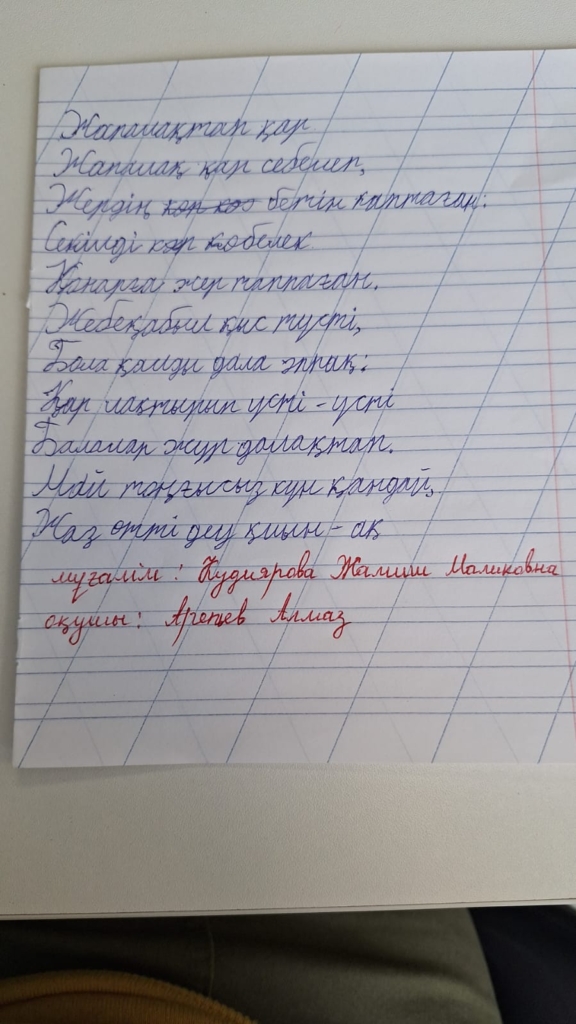 Жапалақтап қар
Жапалақ қар себелеп,
Жердің бетін каптаған.
Секілді көбелек
Қонарға жер таппаған.
Жебеқабыл қыс түсті,
Бола қалды дала аппақ:
Қар лақтырып үсті-үсті
Балалар жүр далақтап.
Май тоңғысыз күн қандай,
Жаз өтті деу қиын-ақ
мұғалім: Кудиярова Маликовна
оқушы: Алмаз